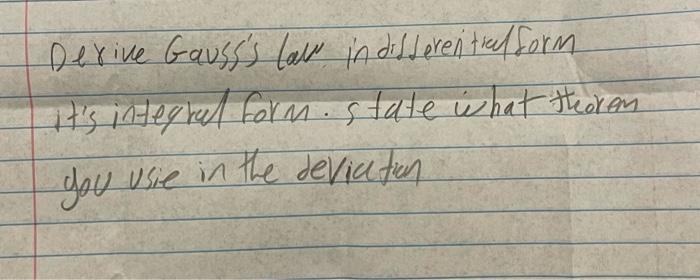 Derive Gauss's law in differential form
it's integral form. state what theorem
you use in the deviation